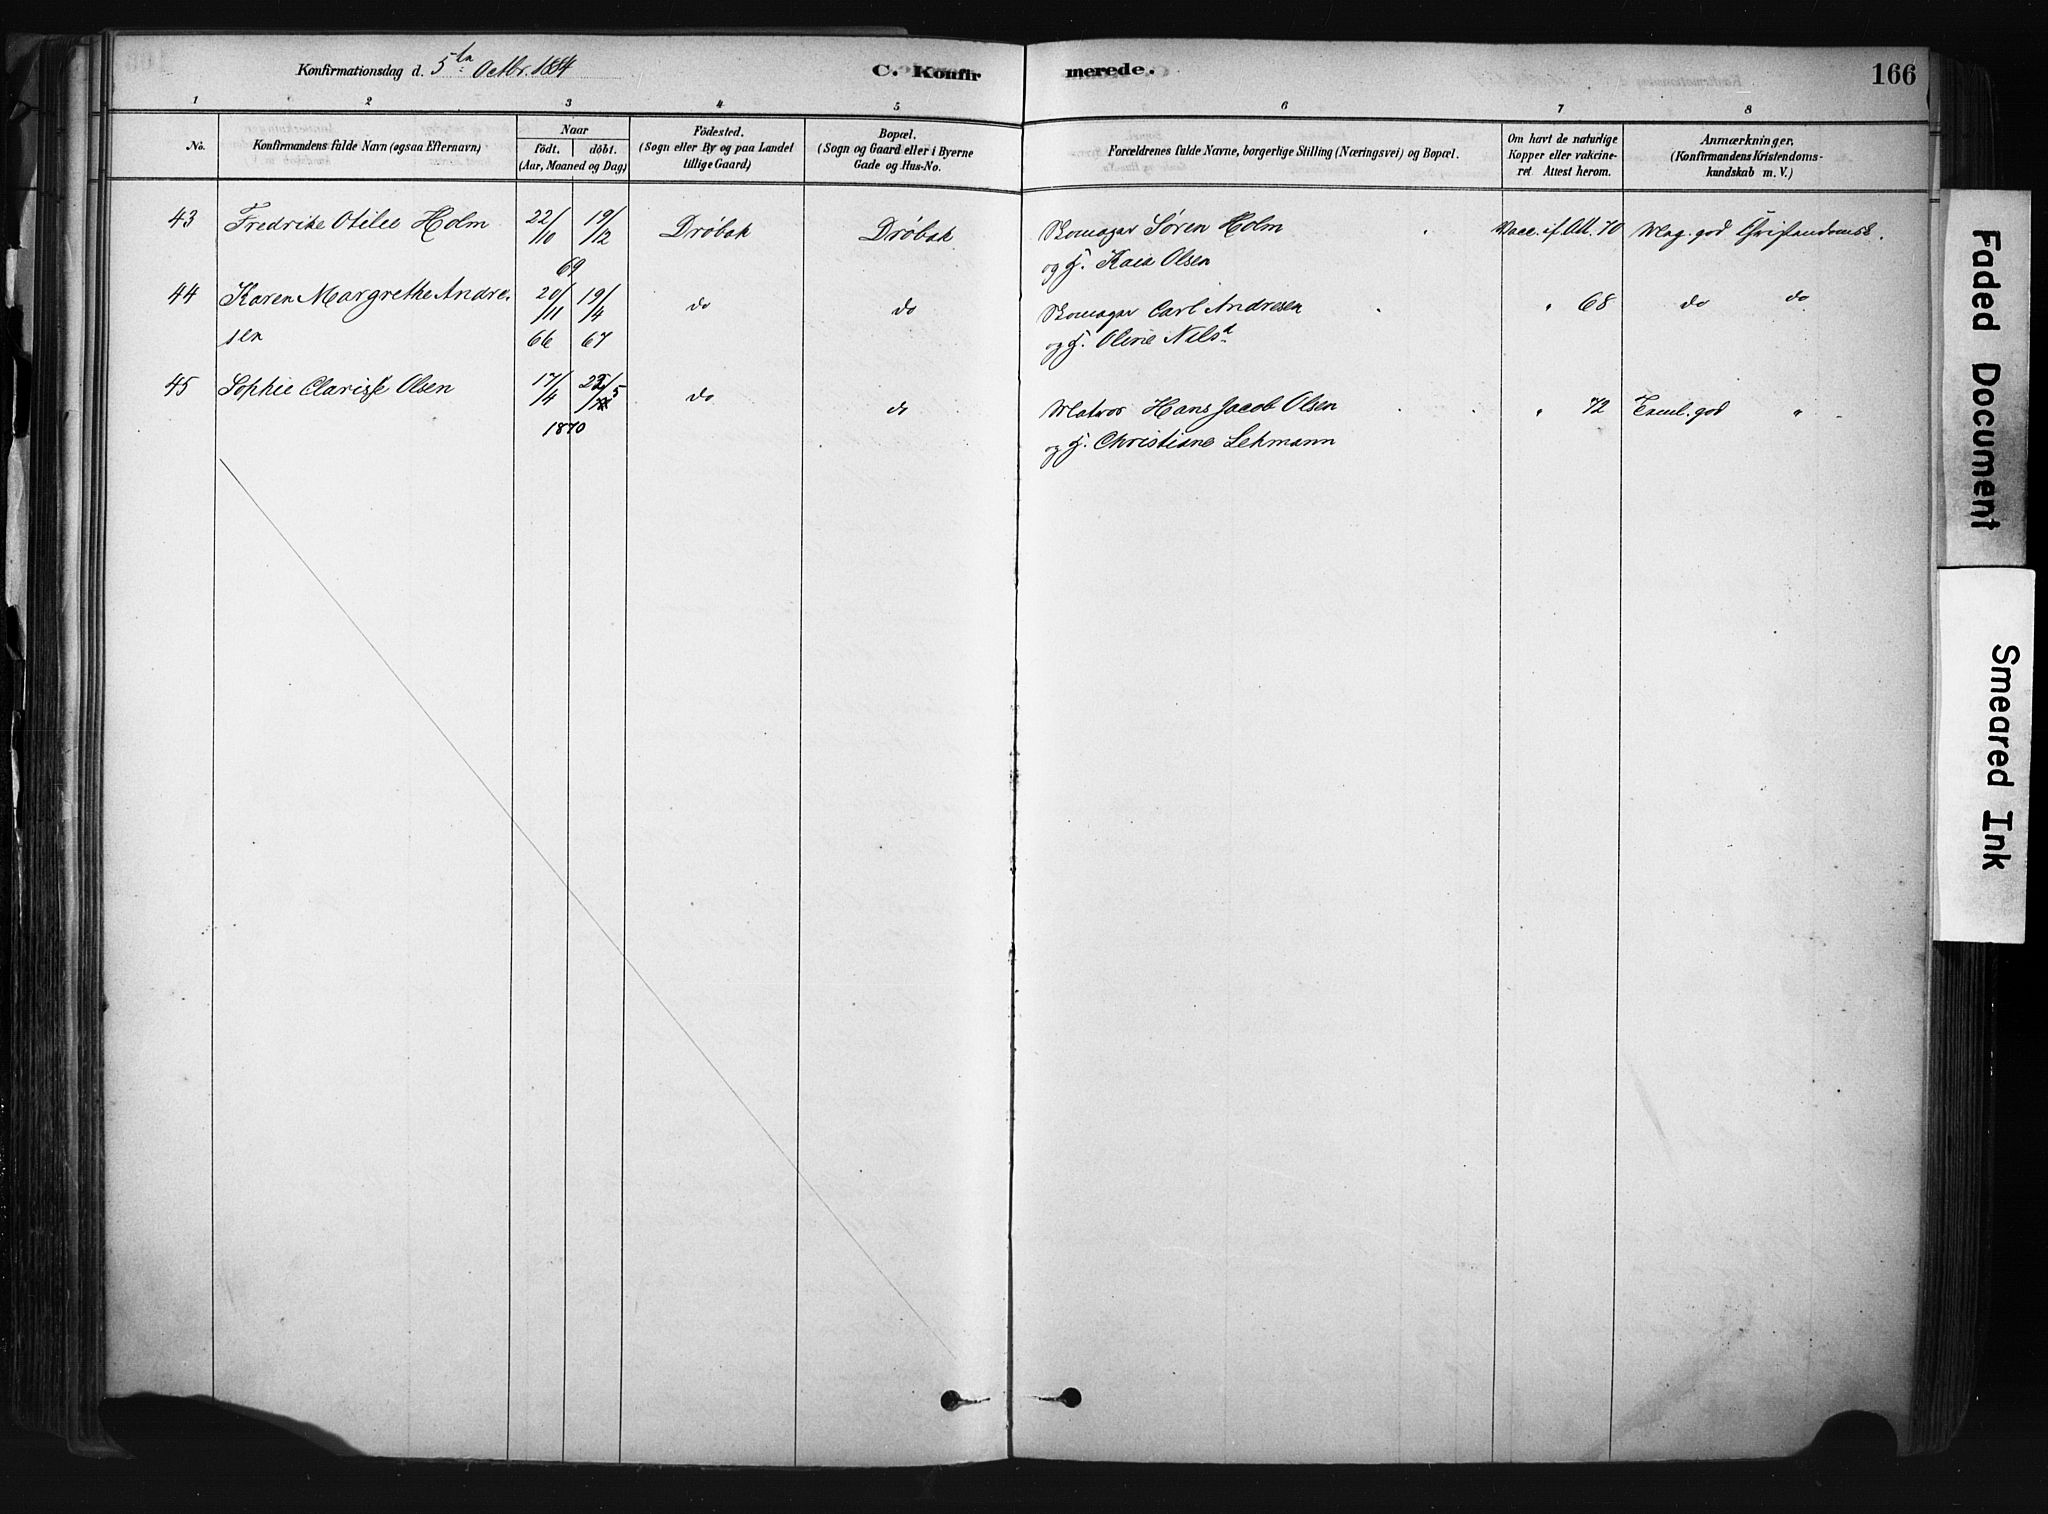 Konfirmationsdag d. 5te Octbr. 1884 C. Konfirmerede. 166
1 2 3 4 5 6 7 8
No. Konfirmandens fulde Navn (ogsaa Efternavn) Naar Födt. döbt. (Aar, Maaned og Dag) Födested. (Sogn eller By og paa Landet tillige Gaard) Bopæl. (Sogn og Gaard eller i Byerne Gade og Hus-No. Forældrenes fulde Navne, borgerlige Stilling (Næringsvei) og Bopæl. Om havt de naturlige Kopper eller vakcineret Attest herom. Anmærkninger. (Konfirmandens Kristendomskundskab m. V.)
43 Fredrike Otilie Holm 22/10 19/12 Drøbak Drøbak Skomager Søren Holm Vacc. if. Att. 70 Mag. god Christendomsk.
69 og H. Kaia Olsen
44 Karen Margrethe Andre- 20/11 19/4 do do Skomager Carl Andresen " 68 do do
sen 66 67 og H. Oline Nilsd
45 Sophie Clarisse Olsen 17/4 22/5 do do Matros Hans Jacob Olsen " 72 Teml. god "
1870 og H. Christiane Lehmann
Faded Document
Smeared Ink